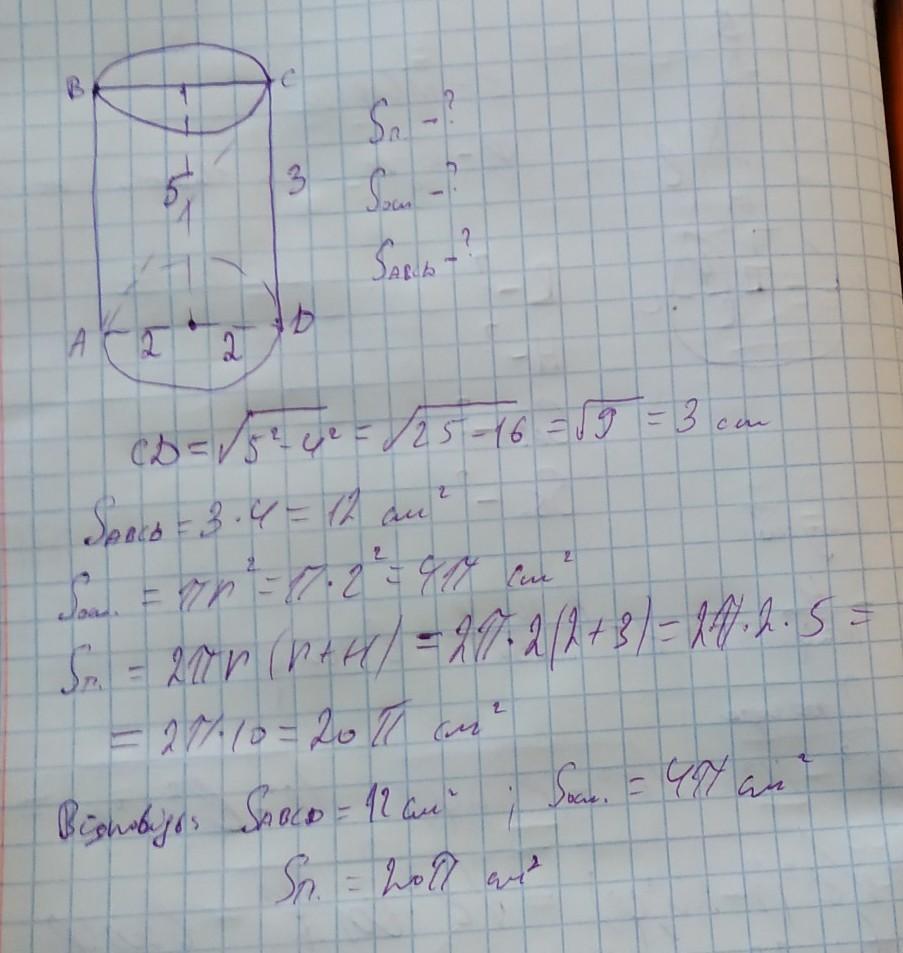 B C
Sп. -?
5 3
Sосн -?
SABCD -?
A 2 2 D
CD = √5² - 4² = √25 - 16 = √9 = 3 см
SABCD = 3 · 4 = 12 см²
Sосн. = πr² = π · 2² = 4π см²
Sп. = 2πr (r + H) = 2π · 2 (2 + 3) = 2π · 2 · 5 =
= 2π · 10 = 20π см²
Відповідь: SABCD = 12 см² ; Sосн. = 4π см²
Sп. = 20π см²